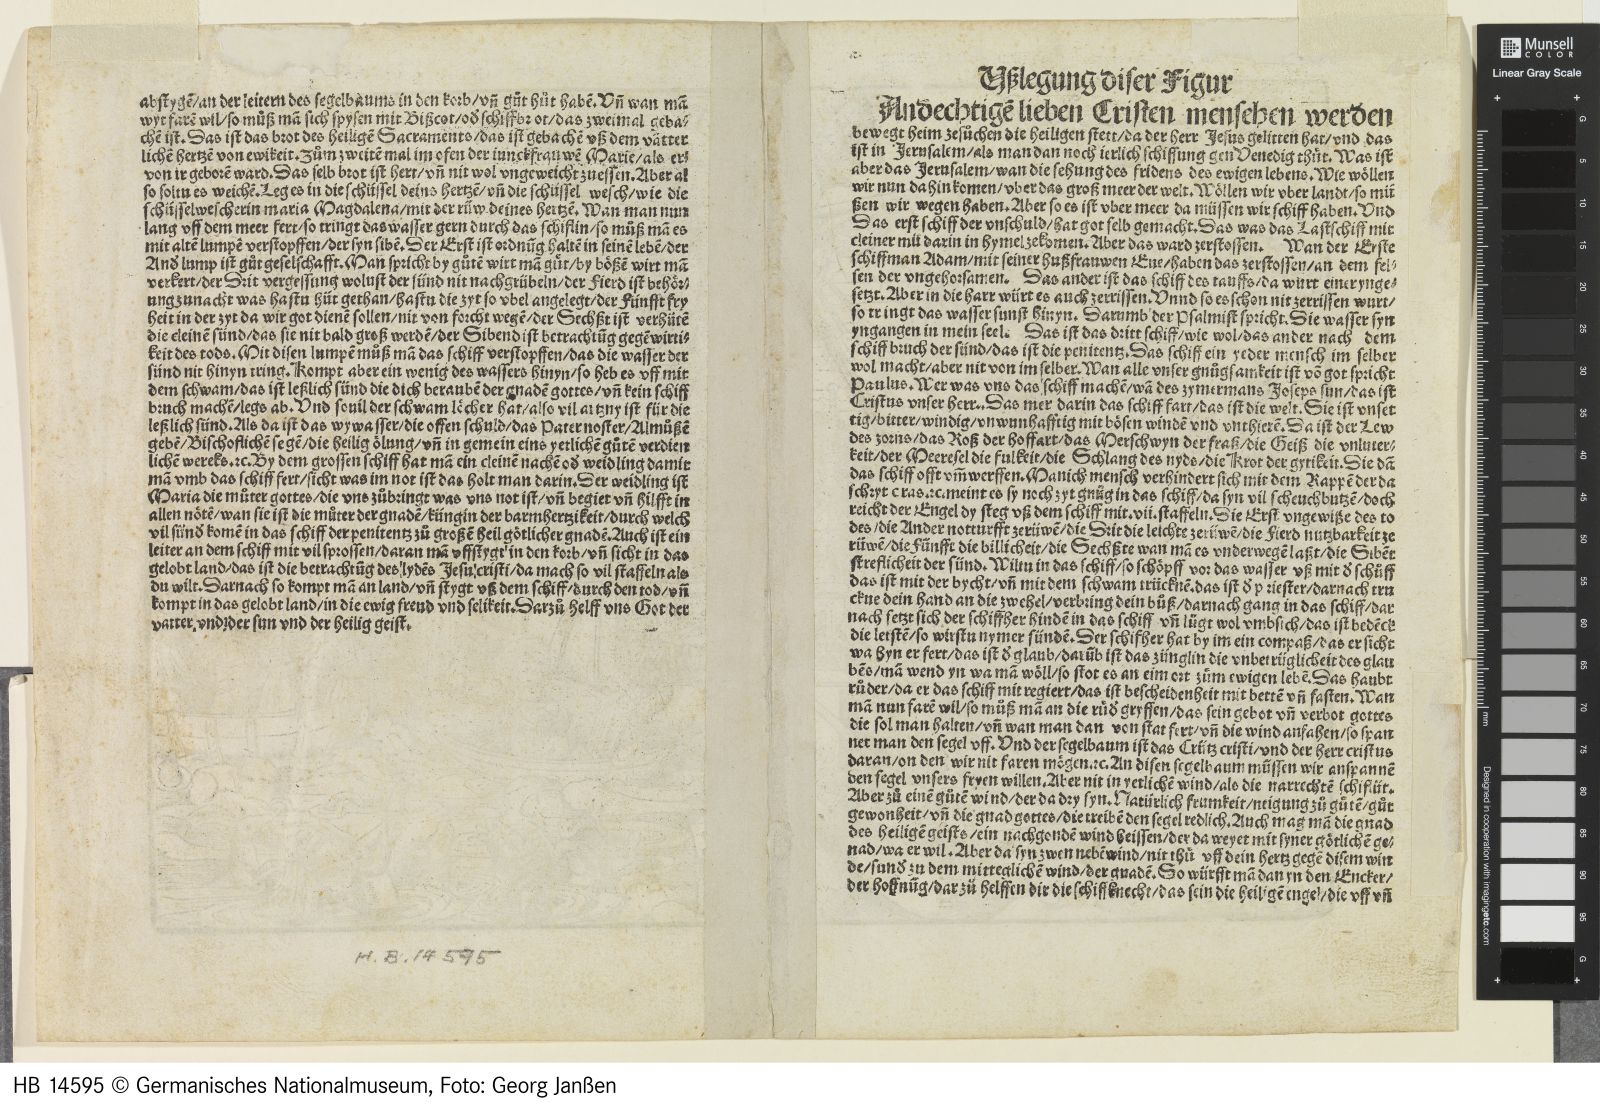 Vßlegung diser Figur
Andechtigē lieben Cristen menschen werden
bewegt heim zesůchen die heiligen stett/da der herr Jesus gelitten hat/vnd das
ist in Jerusalem/als man dan noch ierlich schiffung gen Venedig thůt. Was ist
aber das Jerusalem/wan die sehung des fridens des ewigen lebens. Wie wöllen
wir nun dahin komen/vber das groß meer der welt. Wöllen wir vber landt/so mü
ßen wir wegen haben. Aber so es ist vber meer da müssen wir schiff haben. Vnd
Das erst schiff der vnschuld/hat got selb gemacht. Das was das Lastschiff mit
cleiner mü darin in hymel zekomen. Aber das ward zerstossen. Wan der Erste
schiffman Adam/mit seiner hußfrauwen Eue/haben das zerstossen/an dem fel-
sen der vngehorsamen. Das ander ist das schiff des tauffs/da würt einer ynge-
setzt. Aber in die harr würt es auch zerrissen. Vnnd so es schon nit zerrissen wurt/
so tringt das wasser sunst hinyn. Darumb der Psalmist spricht. Die wasser syn
yngangen in mein seel. Das ist das dritt schiff/wie wol/das ander nach dem
schiffbruch der sünd/das ist die penitentz. Das schiff ein yeder mensch im selber
wol macht/aber nit von im selber. Wan alle vnser gnůgsamkeit ist vō got spricht
Paulus. Wer was vns das schiff machē/wā des zymermans Joseps sun/das ist
Cristus vnser herr. Das mer darin das schiff fart/das ist die welt. Sie ist vnset
tig/bitter/windig/vnwunhafftig mit bösen windē vnd vnthierē. Da ist der Lew
des zorns/das Roß der hoffart/das Merschwyn der fraß/die Geiß die vnluter-
keit/der Meeresel die fulkeit/die Schlang des nyds/die Krot der gytikeit. Die dā
das schiff offt vm̄werffen. Manich mensch verhindert sich mit dem Rappē der da
schryt cras.ꝛc. meint es sy noch zyt gnůg in das schiff/da syn vil scheuchbutzē/doch
reicht der Engel dy steg vß dem schiff mit.vii.staffeln. Die Erst vngewiße des to
des/die Ander notturfft zerüwē/die Drit die leichte zerüwē/die Fierd nutzbarkeit ze
rüwē/die Fünfft die billicheit/die Sechßte wan mā es vnderwegē laßt/die Sibēt
streflicheit der sünd. Wiltu in das schiff/so schöpff vor das wasser vß mit d̄ schüff
das ist mit der bycht/vn̄ mit dem schwam trücknē. das ist d̄ priester/darnach tru
ckne dein hand an die zwehel/verbring dein bůß/darnach gang in das schiff/dar
nach setzt sich der schiffher hindē in das schiff vn̄ lůgt wol vmbsich/das ist bedēck
die letstē/so wirstu nymer sündē. Der schifher hat by im ein compaß/das er sicht
wa hyn er fert/das ist d̄ glaub/darūb ist das zünglin die vnbetrüglicheit des glau
bēs/mā wend yn wa mā wöll/so stot es an eim ort zům ewigen lebē. Das haubt
růder/da er das schiff mit regiert/das ist bescheidenheit mit bettē vn̄ fasten. Wan
mā nun farē wil/so můß mā an die růd̄ gryffen/das sein gebot vn̄ verbot gottes
die sol man halten/vn̄ wan man dan von stat fert/vn̄ die wind anfahen/so span
net man den segel vff. Vnd der segelbaum ist das Crütz cristi/vnd der herr cristus
daran/on den wir nit faren mögen.ꝛc. An disen segelbaum müssen wir anspannē
den segel vnsers fryen willen. Aber nit in yetlichē wind/als die narrechtē schiflüt.
Aber zů einē gůtē wind/der da dry syn. Natürlich frumkeit/neigung zů gůtē/gůt
gewonheit/vn̄ die gnad gottes/die treibē den segel redlich. Auch mag mā die gnad
des heiligē geists/ein nachgondē wind heissen/der da weyet mit syner götlichē ge-
nad/wa er wil. Aber da syn zwen nebēwind/nit thů vff dein hertz gegē disem win
de/sund̄ zu dem mitteglichē wind/der gnadē. So würfft mā dan yn den Encker/
der hoffnūg/dar zů helffen dir die schiffknecht/das sein die heiligē engel/die vff vn̄
abstygē/an der leitern des segelbaums in den korb/vn̄ gůt hůt habē. Vn̄ wan mā
wyt farē wil/so můß mā sich spysen mit Bißcot/od̄ schiffbrot/das zweimal geba-
chē ist. Das ist das brot des heiligē Sacraments/das ist gebachē vß dem vätter
lichē hertzē von ewikeit. Zům zweitē mal im ofen der iunckfrauwē Marie/als er
von ir geborē ward. Das selb brot ist hert/vn̄ nit wol vngeweicht zuessen. Aber al
so soltu es weichē. Leg es in die schüssel deins hertzē/vn̄ die schüssel wesch/wie die
schüsselwescherin maria Magdalena/mit der rüw deines hertzē. Wan man nun
lang vff dem meer fert/so tringt das wasser gern durch das schiflin/so můß mā es
mit altē lumpē verstopffen/der syn sibē. Der Erst ist ordnūg haltē in seinē lebē/der
And̄ lump ist gůt geselschafft. Man spricht by gůtē wirt mā gůt/by bößē wirt mā
verkert/der Drit vergessung wolust der sünd nit nachgrübeln/der Fierd ist behör-
ung zunacht was hastu hüt gethan/hastu die zyt so vbel angelegt/der Fünfft fry
heit in der zyt da wir got dienē sollen/nit von forcht wegē/der Sechßt ist verhütē
die cleinē sünd/das sie nit bald groß werdē/der Sibend ist betrachtūg gegēwirti-
keit des tods. Mit disen lumpē můß mā das schiff verstopffen/das die wasser der
sünd nit hinyn tring. Kompt aber ein wenig des wassers hinyn/so heb es vff mit
dem schwam/das ist leßlich sünd die dich beraubē der gnadē gottes/vn̄ kein schiff
bruch machē/legs ab. Vnd souil der schwam löcher hat/also vil artzny ist für die
leßlich sünd. Als da ist das wywasser/die offen schuld/das Pater noster/Almůßē
gebē/Bischoflichē segē/die heilig ölung/vn̄ in gemein eins yetlichē gůtē verdien
lichē wercks.ꝛc. By dem grossen schiff hat mā ein cleinē nachē od̄ weidling damit
mā vmb das schiff fert/sicht was im not ist das holt man darin. Der weidling ist
Maria die můter gottes/die vns zůbringt was vns not ist/vn̄ begiet vn̄ hilfft in
allen nötē/wan sie ist die můter der gnadē/küngin der barmhertzikeit/durch welch
vil sünd̄ komē in das schiff der penitentz zů großē heil götlicher gnadē. Auch ist ein
leiter an dem schiff mit vil sprossen/daran mā vffstygt in den korb/vn̄ sicht in das
gelobt land/das ist die betrachtūg des lydēs Jesu cristi/da mach so vil staffeln als
du wilt. Darnach so kompt mā an land/vn̄ stygt vß dem schiff/durch den tod/vn̄
kompt in das gelobt land/in die ewig freud vnd selikeit. Darzů helff vns Got der
vatter, vnd der sun vnd der heilig geist.
H.B.14595
Munsell
COLOR
Linear Gray Scale
G
5
10
15
20
25
30
35
40
45
50
55
60
65
70
75
80
85
90
95
G
mm
Designed in cooperation with imagingetc.com
HB 14595 © Germanisches Nationalmuseum, Foto: Georg Janßen